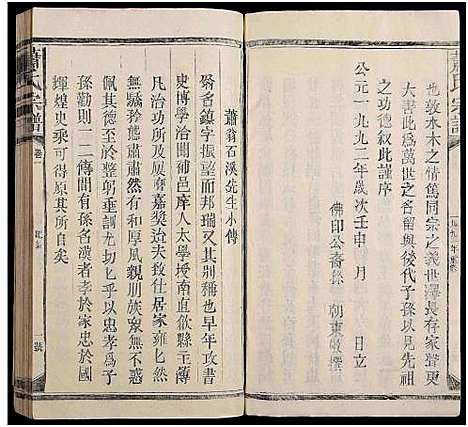 蕭氏宗譜
也敦水木之情篤同宗之義世澤長存家聲更
大書此爲萬世之名留與後代子孫以見先祖
之功德叙此謹序
公元一九九二年歲次壬申 月 日立
佛印公裔孫 朝東敬撰
蕭翁石溪先生小傳
翁名鎮字振望而邦瑞又其別稱也早年攻書
史博學洽聞補邑庠人太學授南直㑹縣主簿
凡治功所及廣膺嘉奨迨夫致仕居家雍匕然
無驕矜態肅肅然有長厚風凡親朋族衆無不感
佩其德於至整躬垂訓尤切匕乎以忠孝爲子
孫勸則一二傳間有孫名漢者孝於家忠於國
輝煌史乘可得原其所自矣
蕭氏宗譜
卷
一號